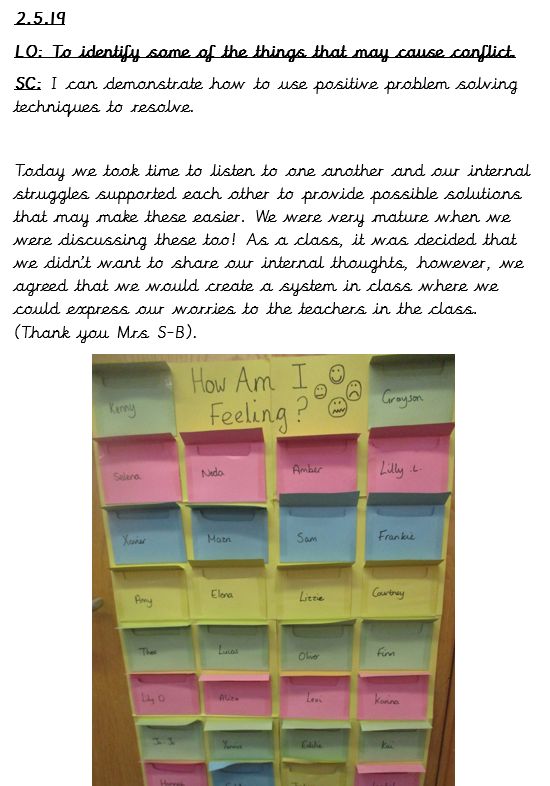 2.5.19
LO: To identify some of the things that may cause conflict.
SC: I can demonstrate how to use positive problem solving
techniques to resolve.
Today we took time to listen to one another and our internal
struggles supported each other to provide possible solutions
that may make these easier. We were very mature when we
were discussing these too! As a class, it was decided that
we didn't want to share our internal thoughts, however, we
agreed that we would create a system in class where we
could express our worries to the teachers in the class.
(Thank you Mrs S-B).
How Am I
Feeling?
Kenny
Grayson
Selena
Neda
Amber
Lilly .L.
Xavier
Sam
Frankie
Amy
Elena
Lizzie
Courtney
Theo
Lucas
Oliver
Finn
Lily D
Alize
Levi
Karina
Jo-Jo
Eddie
Kai